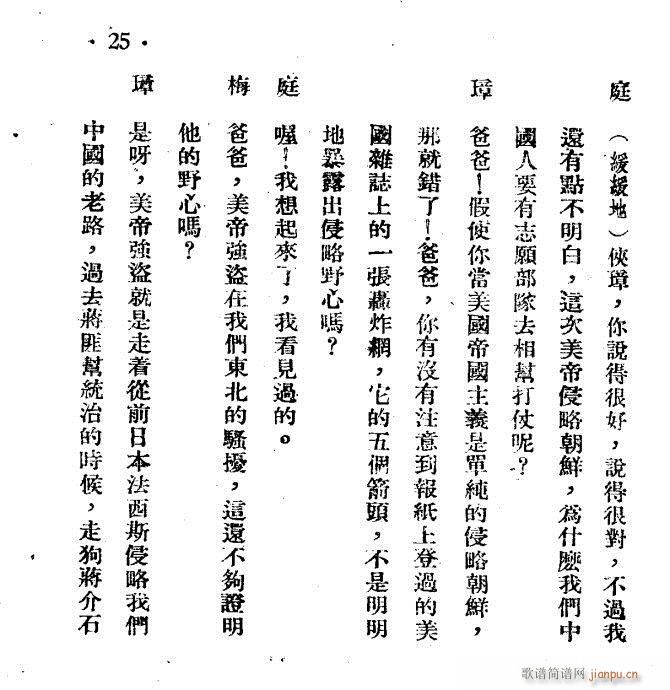 ·25·
庭　（緩緩地）俠璋，你說得很好，說得很對，不過我
還有點不明白，這次美帝侵略朝鮮，爲什麽我們中
國人要有志願部隊去相幫打仗呢？
璋　爸爸！假使你當美國帝國主義是單純的侵略朝鮮，
那就錯了！爸爸，你有沒有注意到報紙上登過的美
國雜誌上的一張轟炸網，它的五個箭頭，不是明明
地暴露出侵略野心嗎？
庭　喔！我想起來了，我看見過的。
梅　爸爸，美帝強盜在我們東北的騷擾，這還不夠證明
他的野心嗎？
璋　是呀，美帝強盜就是走着從前日本法西斯侵略我們
中國的老路，過去蔣匪幫統治的時候，走狗蔣介石
歌谱简谱网
jianpu.cn